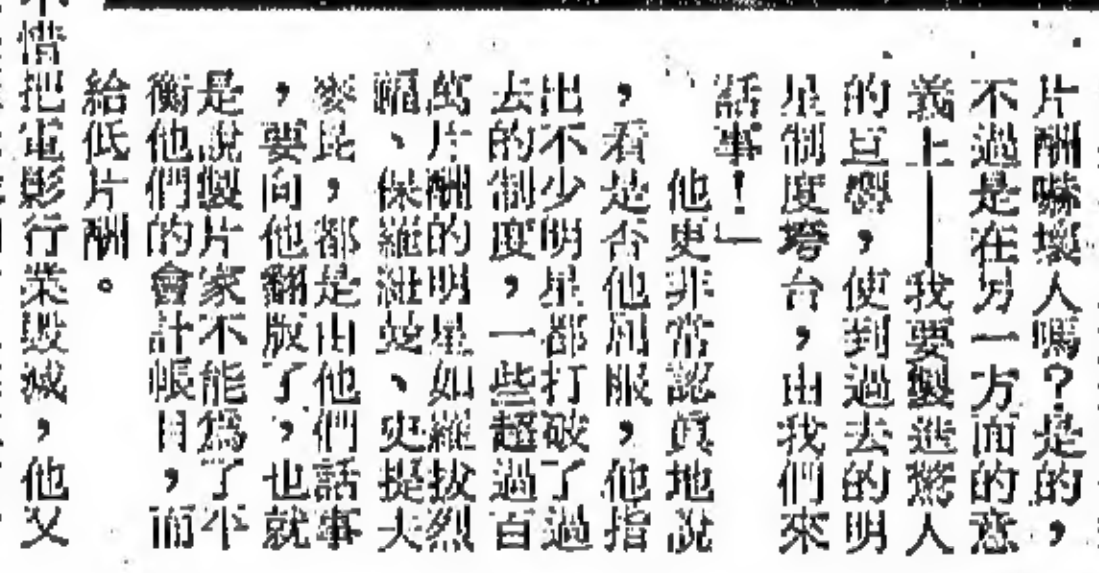 片酬嚇壞人嗎？是的，
不過是在另一方面的意
義上——我要製造驚人
的巨響，使到過去的明
星制度垮台，由我們來
話事！」
他更非常認真地說
，看是否他相服，他指
出不少明星都打破了過
去的制度，一些超過百
萬片酬的明星如羅拔烈
福、保羅紐曼、史提夫
麥昆，都是由他們話事
，要向他翻版了，也就
是說製片家不能為了平
衡他們的會計帳目，而
給低片酬。
惜把電影行業毀滅，他又